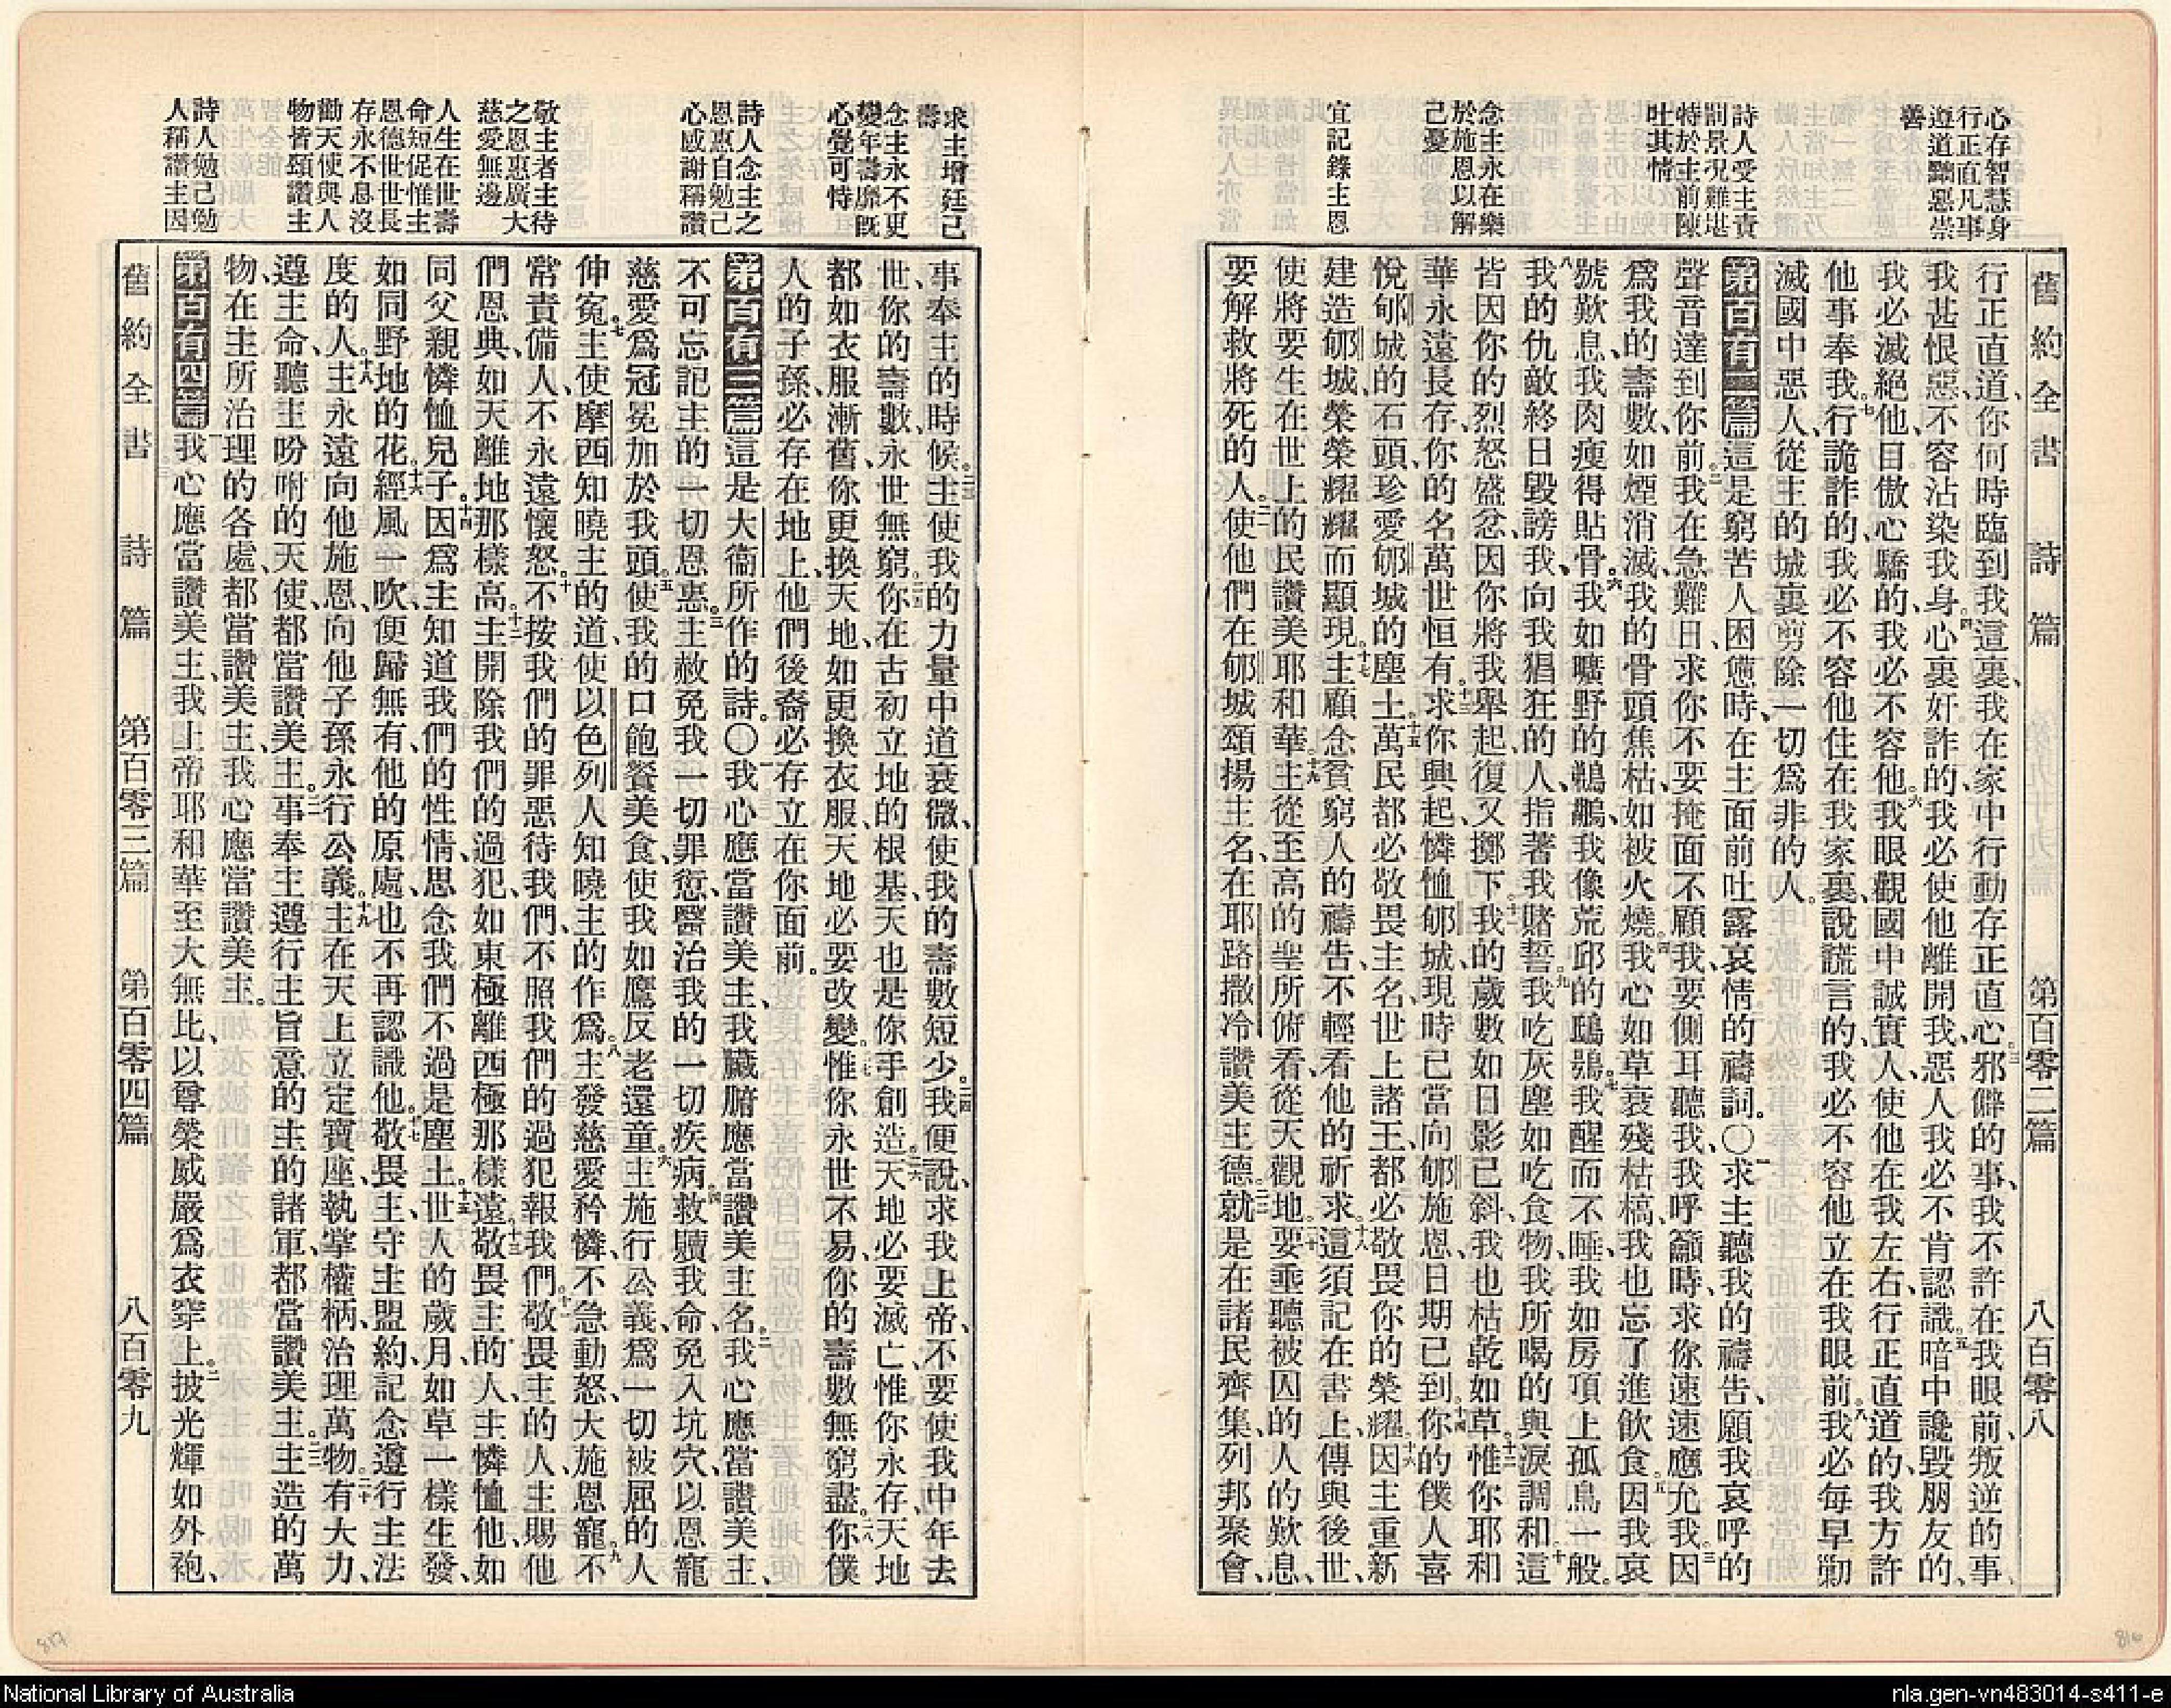 舊約全書 詩篇 第百零二篇 八百零八
心存智慧身
行正直凡事
遵道黜惡崇
善
詩人受主責
罰景況難堪
特於主前陳
吐其情
念主永在樂
於施恩以解
己憂
宜記錄主恩
行正直道、你何時臨到我這裏、我在家中行動存正直心、三邪僻的事、我不許在我眼前、叛逆的事、
我甚恨惡、不容沾染我身。四心裏奸詐的、我必使他離開我、惡人我必不肯認識。五暗中讒毀朋友的、
我必滅絕他、目傲心驕的、我必不容他。六我眼觀國中誠實人、使他在我左右、行正直道的、我方許
他事奉我。七行詭詐的、我必不容他住在我家裏、說謊言的、我必不容他立在我眼前。八我必每早勦
滅國中惡人、從主的城裏、剪除一切爲非的人。
第百有二篇 這是窮苦人、困憊時、在主面前吐露哀情的禱詞。〇一求主聽我的禱告、願我哀呼的
聲音達到你前。二我在急難日、求你不要掩面不顧我、要側耳聽我、我呼籲時、求你速速應允我。三因
爲我的壽數、如煙消滅、我的骨頭焦枯、如被火燒。四我心如草衰殘枯槁、我也忘了進飲食。五因我哀
號歎息、我肉瘦得貼骨。六我如曠野的鵜鶘、我像荒邱的鴟鴞。七我醒而不睡、我如房頂上孤鳥一般。
八我的仇敵終日毀謗我、向我猖狂的人、指著我賭誓。九我吃灰塵如吃食物、我所喝的與淚調和。十這
皆因你的烈怒盛忿、因你將我舉起、復又擲下。十一我的歲數如日影已斜、我也枯乾如草。十二惟你耶和
華永遠長存、你的名萬世恒有。十三求你興起、憐恤郇城、現時已當向郇施恩、日期已到。十四你的僕人喜
悅郇城的石頭、珍愛郇城的塵土。十五萬民都必敬畏主名、世上諸王、都必敬畏你的榮耀。十六因主重新
建造郇城、榮榮耀耀而顯現。十七主顧念貧窮人的禱告、不輕看他的祈求。十八這須記在書上、傳與後世、
使將要生在世上的民讚美耶和華。十九主從至高的聖所俯看、從天觀地。二十要垂聽被囚的人的歎息、
要解救將死的人。二一使他們在郇城頌揚主名、在耶路撒冷讚美主德。二二就是在諸民齊集、列邦聚會、
求主增延己
壽
念主永不更
變年壽靡既
心覺可恃
詩人念主之
恩惠自勉己
心感謝稱讚
敬主者主待
之恩惠廣大
慈愛無邊
人生在世壽
命短促惟主
恩德世世長
存永不息沒
勸天使與人
物皆頌讚主
詩人勉己勉
人稱讚主因
事奉主的時候。二三主使我的力量中道衰微、使我的壽數短少。二四我便說、求我上帝、不要使我中年去
世、你的壽數、永世無窮。二五你在古初立地的根基、天也是你手創造。二六天地必要滅亡、惟你永存、天地
都如衣服漸舊、你更換天地、如更換衣服、天地必要改變。二七惟你永世不易、你的壽數無窮盡。二八你僕
人的子孫、必存在地上、他們後裔必存立在你面前。
第百有三篇 這是大衞所作的詩。〇一我心應當讚美主、我臟腑應當讚美主名。二我心應當讚美主、
不可忘記主的一切恩惠。三主赦免我一切罪愆、醫治我的一切疾病。四救贖我命、免入坑穴、以恩寵
慈愛爲冠冕加於我頭。五使我的口飽餐美食、使我如鷹反老還童。六主施行公義、爲一切被屈的人
伸冤。七主使摩西知曉主的道、使以色列人知曉主的作爲。八主發慈愛矜憐、不急動怒、大施恩寵。九不
常責備人、不永遠懷怒。十不按我們的罪惡待我們、不照我們的過犯報我們。十一敬畏主的人、主賜他
們恩典、如天離地那樣高。十二主開除我們的過犯、如東極離西極那樣遠。十三敬畏主的人、主憐恤他、如
同父親憐恤兒子。十四因爲主知道我們的性情、思念我們不過是塵土。十五世人的歲月、如草一樣生發、
如同野地的花。十六經風一吹、便歸無有、他的原處、也不再認識他。十七敬畏主、守主盟約、記念遵行主法
度的人。十八主永遠向他施恩、向他子孫永行公義。十九主在天上立定寶座、執掌權柄、治理萬物。二十有大力、
遵主命、聽主吩咐的天使、都當讚美主。二一事奉主遵行主旨意的主的諸軍、都當讚美主。二二主造的萬
物、在主所治理的各處、都當讚美主、我心應當讚美主。
第百有四篇 一我心應當讚美主、我上帝耶和華至大無比、以尊榮威嚴爲衣穿上。二披光輝如外袍、
舊約全書 詩篇 第百零三篇 第百零四篇 八百零九
817
816
National Library of Australia
nla.gen-vn483014-s411-e